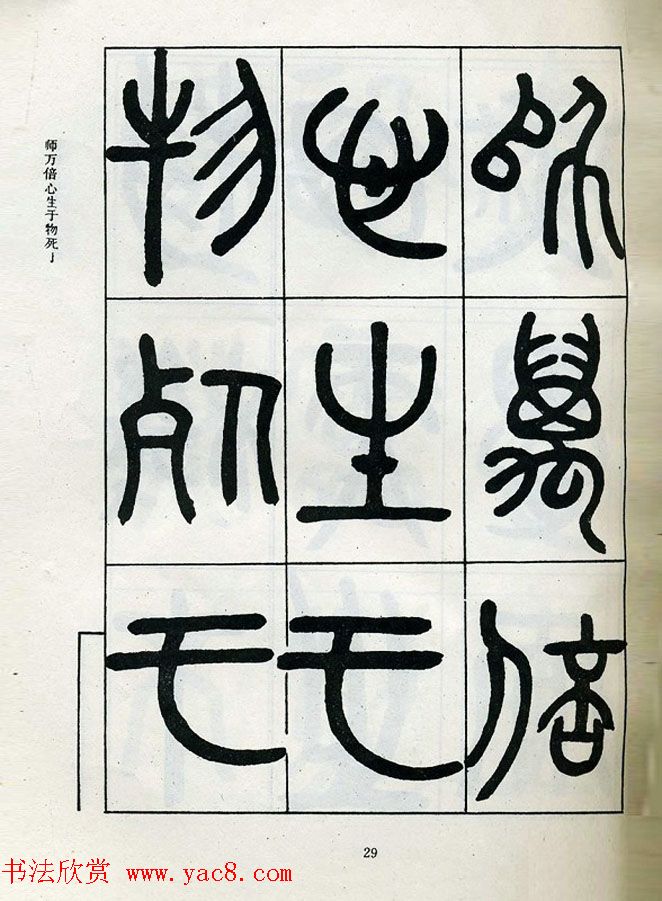 師萬倍
心生于
物死于
师万倍心生于物死
29
书法欣赏 www.yac8.com